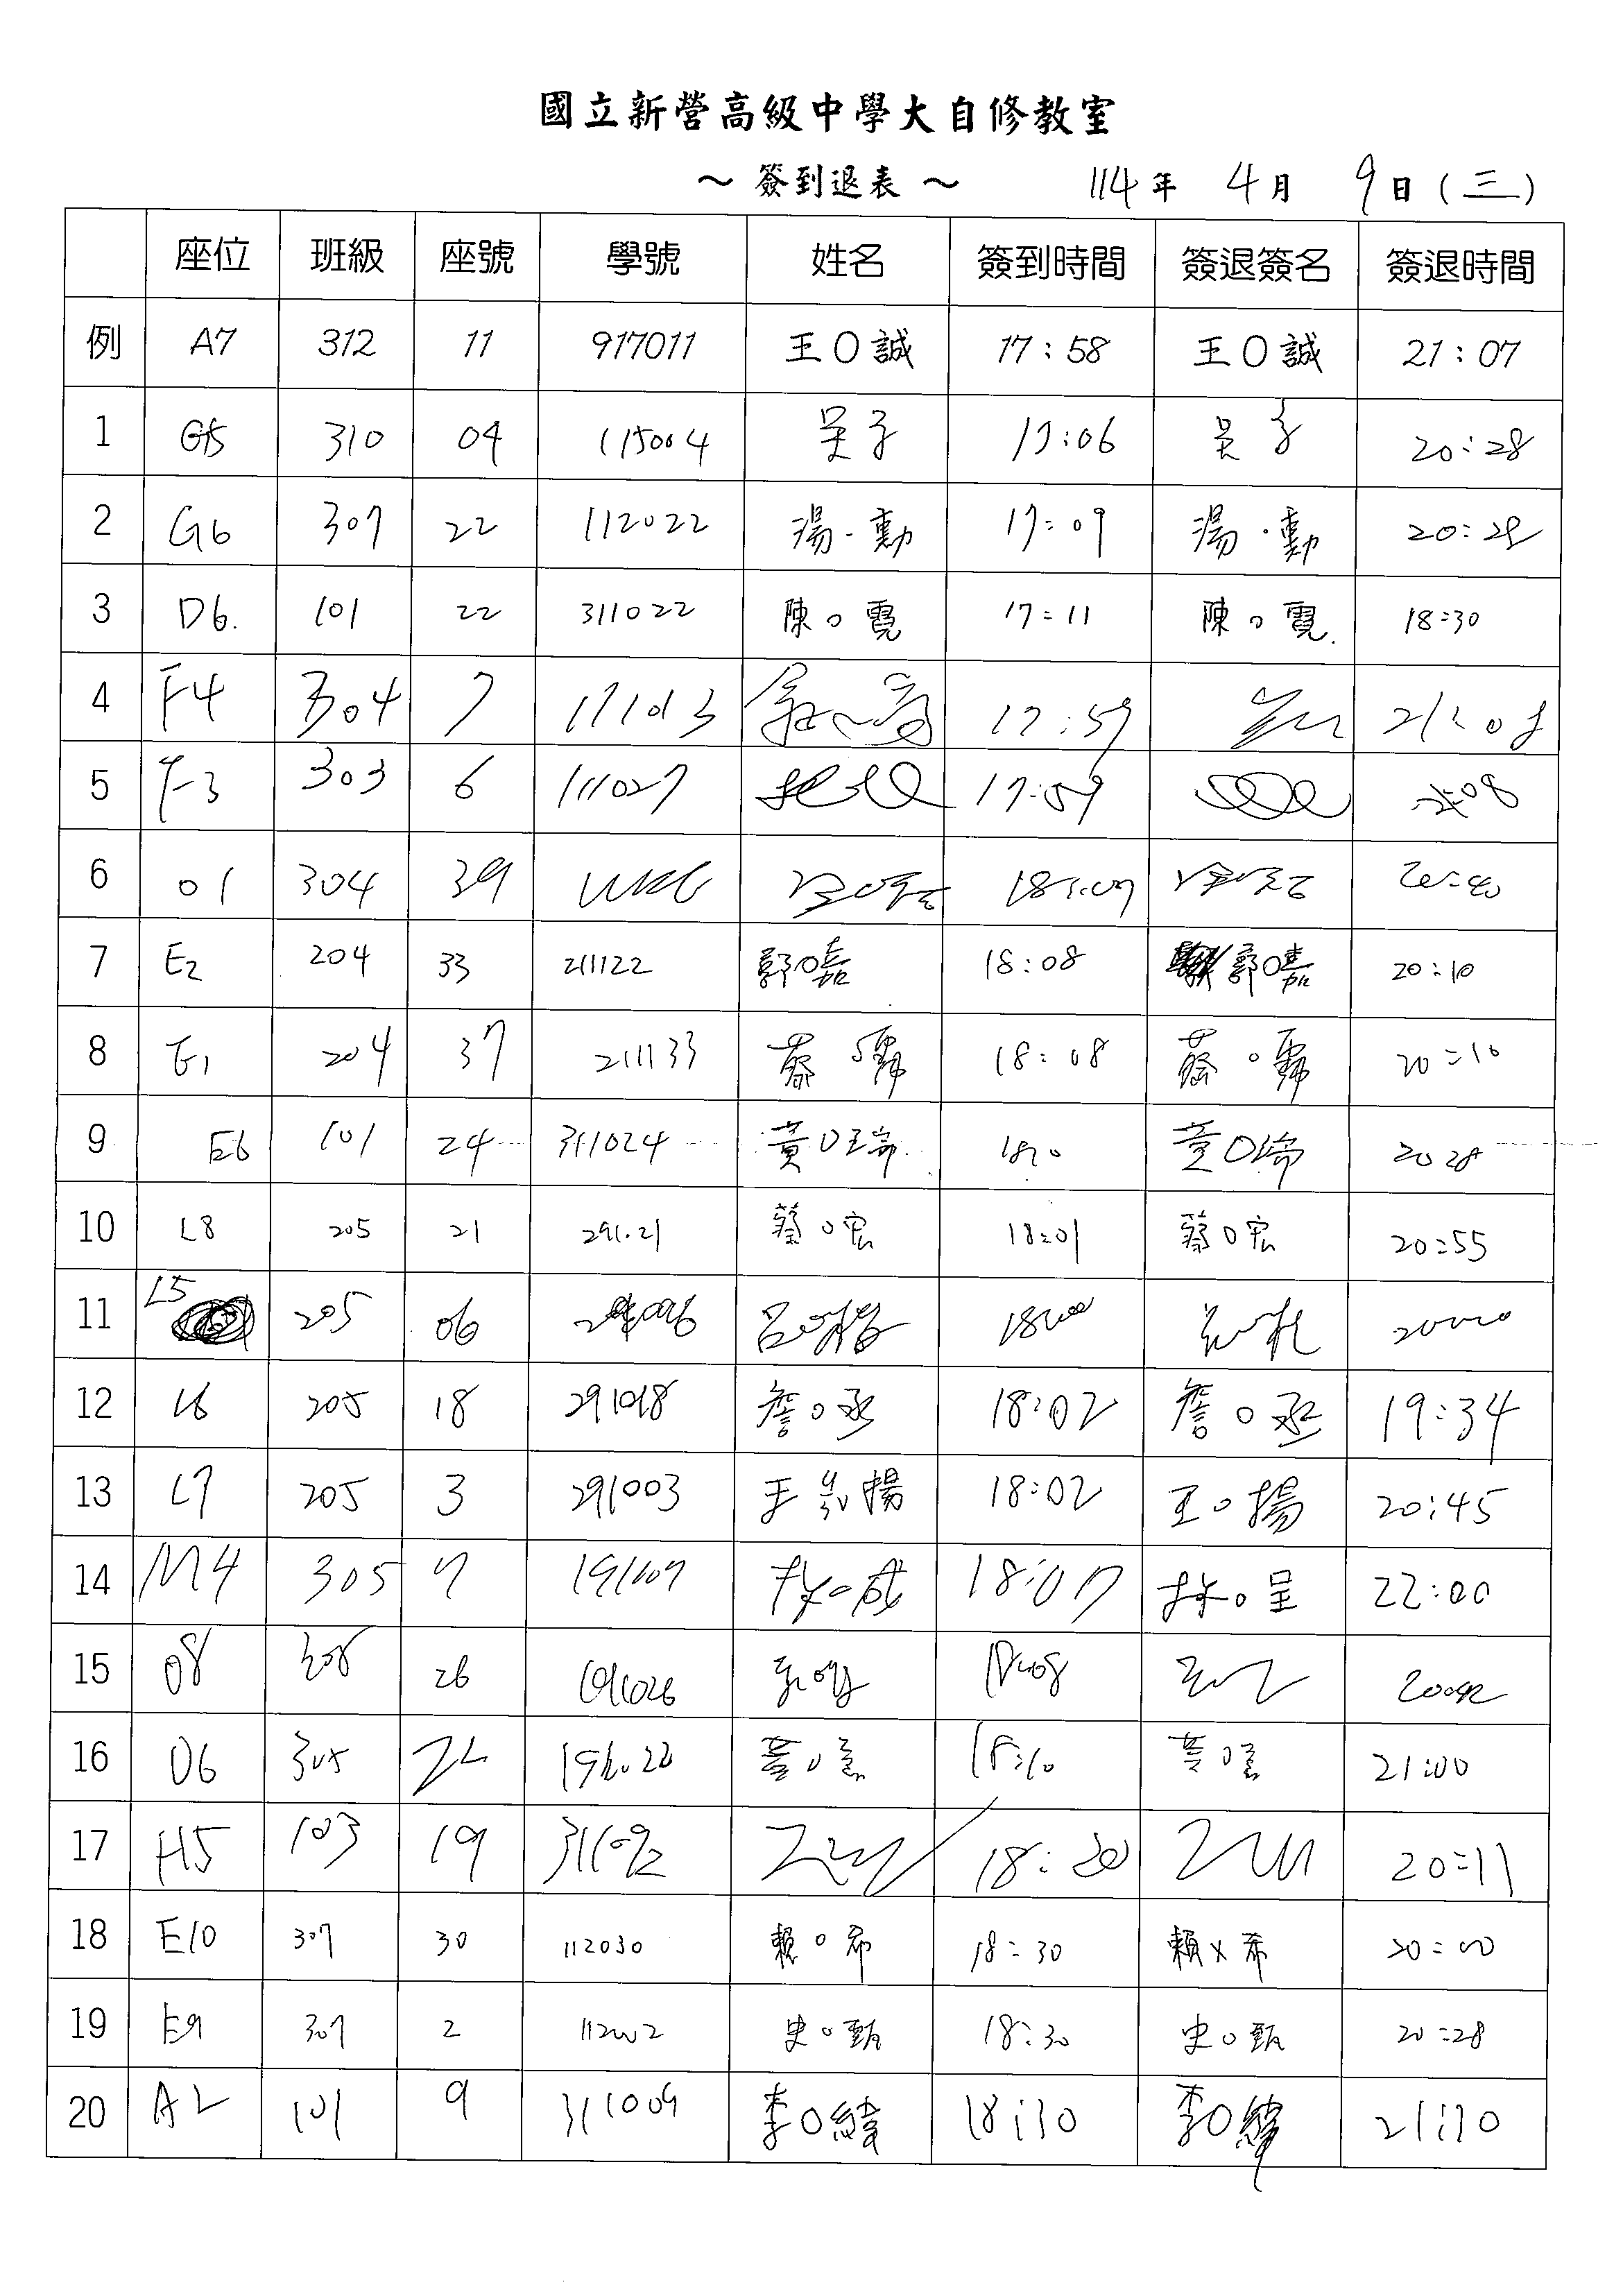 國立新營高級中學大自修教室
～ 簽到退表 ～ 114年 4月 9日(三)
座位 班級 座號 學號 姓名 簽到時間 簽退簽名 簽退時間
例 A7 312 11 917011 王〇誠 17:58 王〇誠 21:07
1 G5 310 04 115004 吳子 17:06 吳子 20:28
2 G6 307 22 112022 湯·勳 17:09 湯·勳 20:28
3 D6. 101 22 311022 陳。霓 17:11 陳。霓. 18:30
4 F4 304 7 111013 17:59 21:08
5 F3 303 6 111027 17:59
6 01 304 39 18:09 20:40
7 E2 204 33 211122 郭O嘉 18:08 郭O嘉 20:10
8 E1 204 37 211133 蔡 18:08 蔡 20:10
9 E6 101 24 311024 黃O瑜 1810 黃O瑜 2028
10 L8 205 21 291.21 蔡O宏 18:01 蔡O宏 20:55
11 L5 205 06 呂 1800
12 L6 205 18 291018 詹O丞 18:02 詹O丞 19:34
13 L7 205 3 291003 王崇揚 18:02 王O揚 20:45
14 M4 305 7 191007 18:07 林O呈 22:00
15 08 26 191026
16 06 305 22 黃O 18:10 黃O 21:00
17 H5 103 19 18:20 20:11
18 E10 307 30 112030 賴O希 18:30 賴X希 20:00
19 E9 307 2 112002 史O甄 18:30 史O甄 20:28
20 A2 101 9 311009 李O緯 18:10 李O緯 21:10